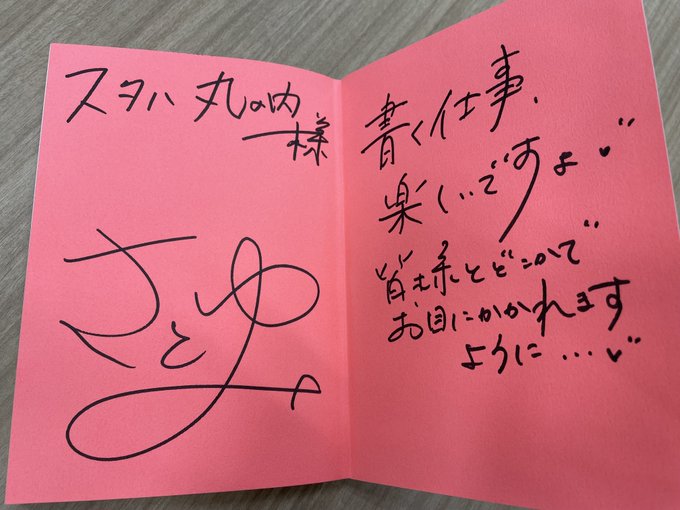 スタハ 丸の内
様
さとゆみ
書く仕事、
楽しいですよ♥
皆様とどこかで
お目にかかれます
ように…♥